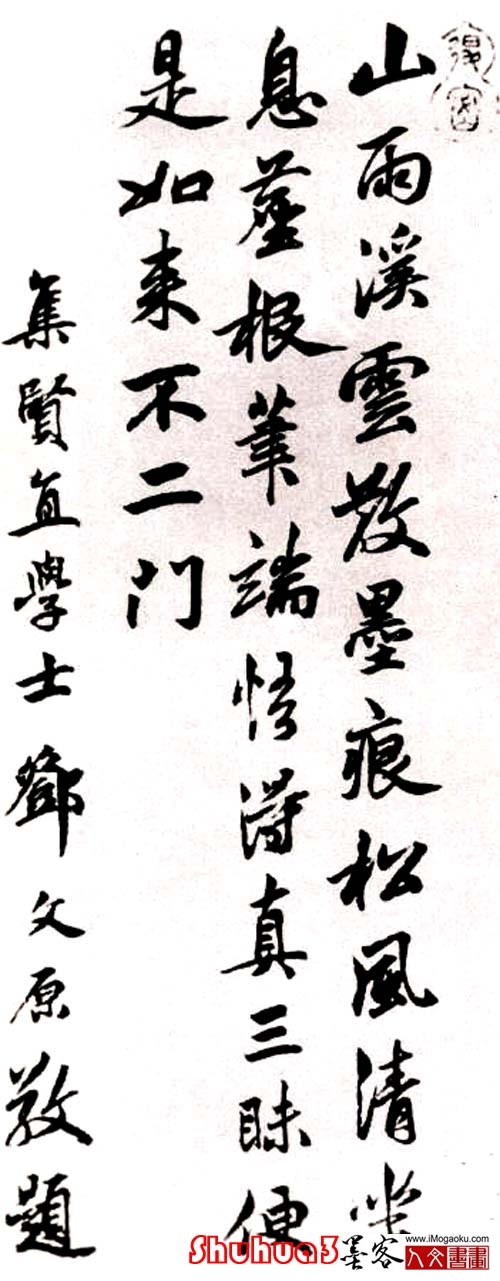 山雨溪雲散墨痕松風清坐
息塵根筆端悟得真三昧便
是如來不二門
集賢直學士鄧文原敬題
Shuhua3
墨客
www.iMogaoku.com
人文書畫